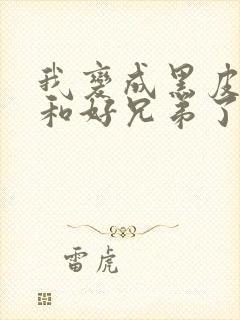 我變成黑皮
和好兄弟了
雷虎